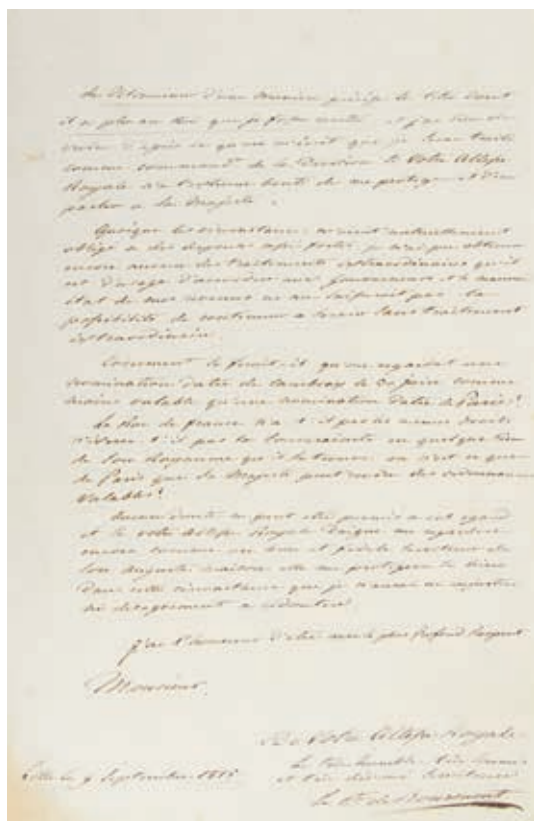 il a plu au Roi que je fusse et j'ai lieu de
croire d'après ce qu'on m'écrit que je serai traité
comme command^t de la Division si Votre Altesse
Royale a l'extrême bonté de me protéger et d'en
parler à Sa Majesté.
Quoique les circonstances m'aient naturellement
obligé à des dépenses assez fortes je n'ai pu obtenir
encore aucun des traitements extraordinaires qu'il
est d'usage d'accorder aux Gouverneurs et le mauvais
état de mes me pas la
possibilité de continuer à servir sans traitement
extraordinaire.
Comment se feroit-il qu'on regardat une
nomination datée de Cambray le 30 juin comme
moins valable qu'une nomination datée de Paris!
Le Roi de france n'a t-il pas les mêmes droits
n'exerce t'il pas la Souveraineté en quelque lieu
de son Royaume qu'il se trouve ou n'est ce que
de Paris que Sa Majesté peut rendre des ordonnances
valables!
Aucun doute ne peut être permis a cet egard
et si votre Altesse Royale daigne me regarder
encore comme un bon et fidele serviteur de
son auguste maison elle me protegera si bien
dans cette circonstance que je n'aurai ni injustice
ni desagrement a redouter.
J'ai l'honneur d'être avec le plus profond respect
Monsieur,
De Votre Altesse Royale
Le très humble très
et très dévoué Serviteur
Lille le 9 Septembre 1815
le C^te de Bourmont